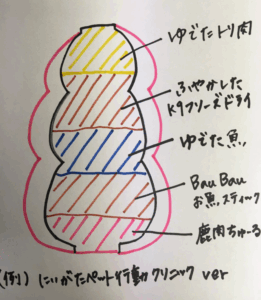 ゆでたトリ肉
ふやかした
K9フリーズドライ
ゆでた魚
BauBau
お魚スティック
鹿肉ちゅーる
(例) にいがたペット行動クリニック ver